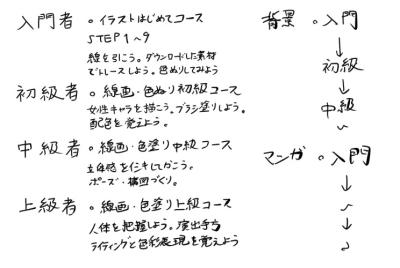 入門者 。イラストはじめてコース
STEP 1~9
線を引こう。ダウンロードした素材
でトレースしよう。色ぬりしてみよう
初級者 。線画・色ぬり初級コース
女性キャラを描こう。ブラシ塗りしよう。
配色を覚えよう。
中級者 。線画・色塗り中級コース
立体感を
かこう。
ポーズ・構図づくり。
上級者 。線画・色塗り上級コース
人体を把握しよう。演出手ち
ライティングと色彩表現を覚えよう
背景 。入門
↓
初級
↓
中級
〜
マンガ 。入門
↓
〜
↓
〜